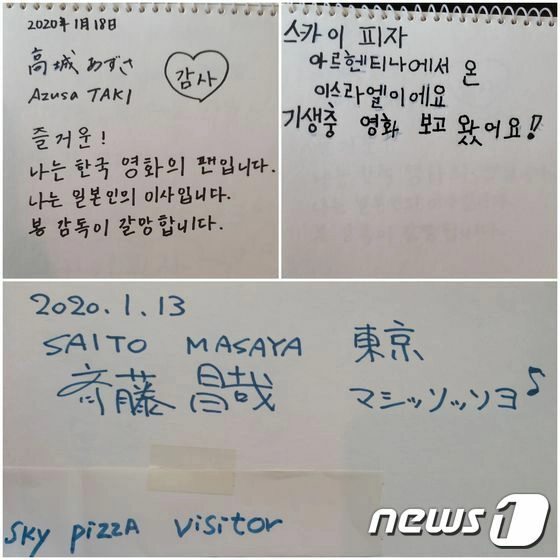 2020年 1月 18日
高城 あずさ
Azusa TAKI
감사
즐거운!
나는 한국 영화의 팬입니다.
나는 일본인의 이사입니다.
봉 감독이 갈망합니다.
스카이 피자
아르헨티나에서 온
이스라엘이에요
기생충 영화 보고 왔어요!!
2020.1.13
SAITO MASAYA 東京
斉藤 昌哉 マシッソッソヨ♪
sky pizzA visitor
news1